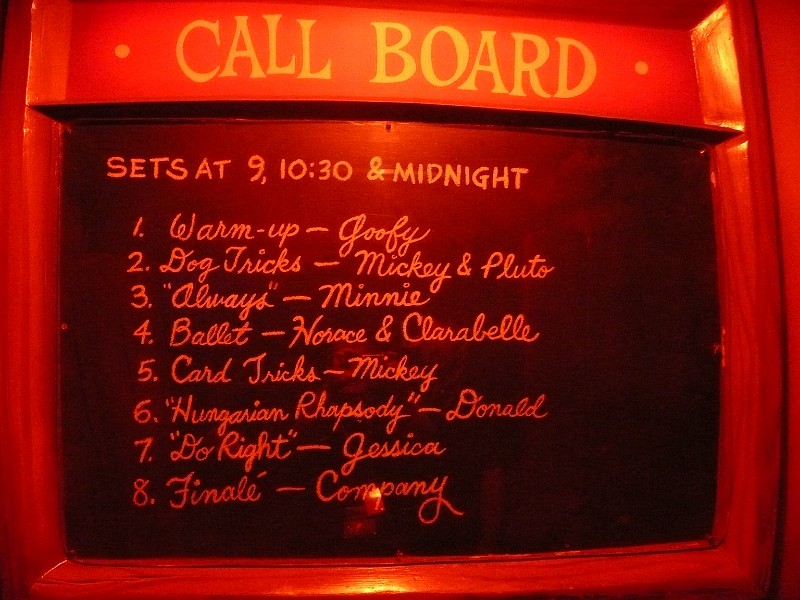 • CALL BOARD •
SETS AT 9, 10:30 & MIDNIGHT
1. Warm-up — Goofy
2. Dog Tricks — Mickey & Pluto
3. "Always" — Minnie
4. Ballet — Horace & Clarabelle
5. Card Tricks — Mickey
6. "Hungarian Rhapsody" — Donald
7. "Do Right" — Jessica
8. Finalé — Company